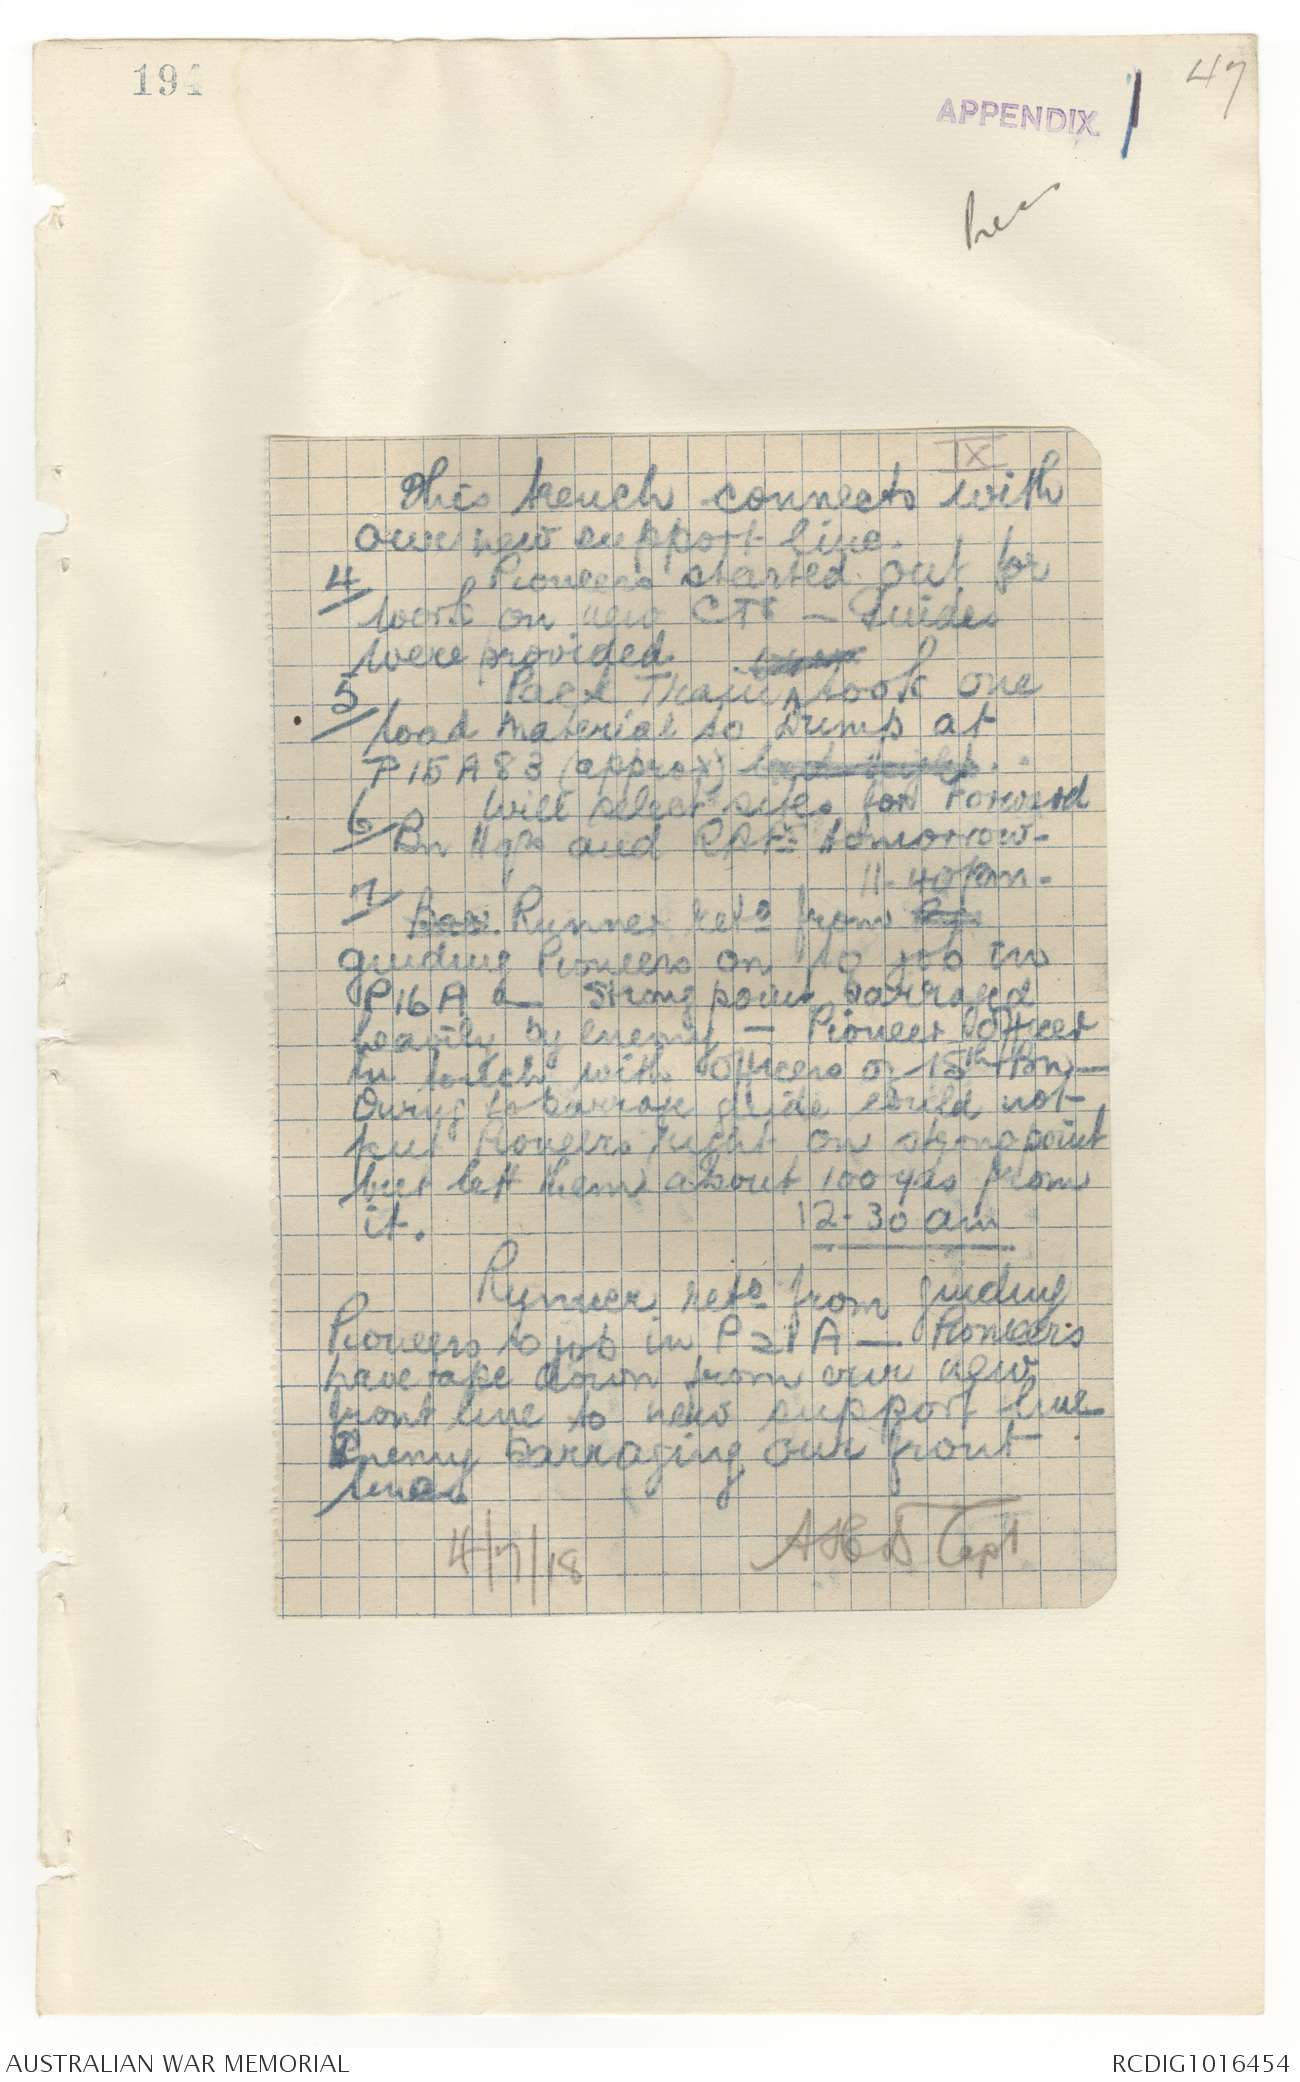 194
47
APPENDIX 1
IX
This trench connects with
our new support line.
4/ Pioneers started out for
work on new CTs — Guides
were provided.
5/ Pack Train took one
load material to Dump at
P15A83 (approx)
6/ Will select sites for Forward
Bn Hqrs and RAPs tomorrow-
11-40 pm.
7/ Runner retd from
guiding Pioneers on to job in
P16A — Strong point barraged
heavily by enemy — Pioneer Officer
in touch with Officers of 15th Bn —
During barrage guide could not
put Pioneers right on strongpoint
but left them about 100 yds from
it.
12-30 am
Runner retd from guiding
Pioneers to job in P21A — Pioneers
have tape down from our new
front line to new support line
Enemy barraging our front
lines
4/7/18
Capt
AUSTRALIAN WAR MEMORIAL
RCDIG1016454